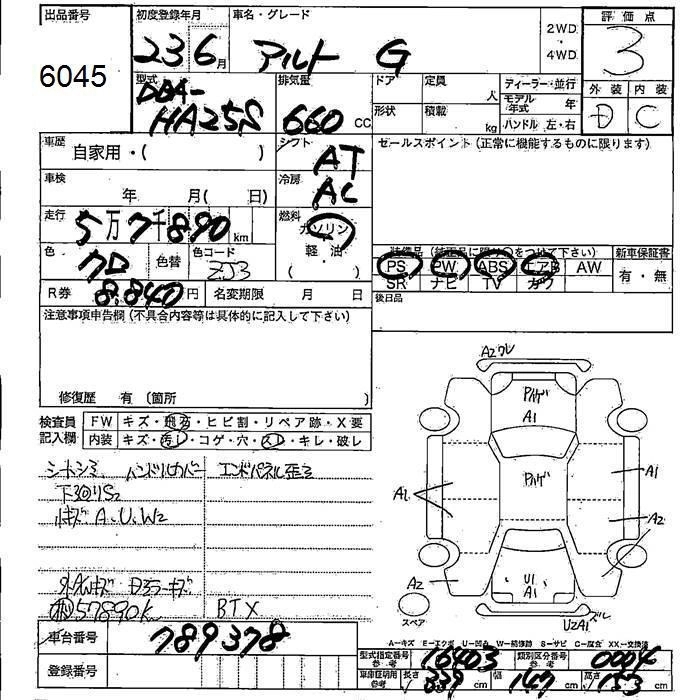 出品番号 初度登録年月 車名・グレード 2WD・4WD 評価点
6045 23 6月 アルト G 3
型式 排気量 ドア 定員 人 ディーラー・並行 外装 内装
DBA-HA25S 660 CC 形状 積載 kg モデル年式 年 D C
ハンドル 左・右
車歴 自家用・( ) シフト AT セールスポイント (正常に機能するものに限ります)
車検 年 月( 日) 冷房 AC
走行 5万7千890km 燃料 ガソリン
色 色替 色コード ZJ3 軽油・( )
装備品 (純正品に限り○をつけて下さい) 新車保証書
PS PW ABS エアB AW 有・無
SR ナビ TV カワ
R券 8.840円 名変期限 月 日 後日品
注意事項申告欄 (不具合内容等は具体的に記入して下さい)
修復歴 有 (箇所 )
検査員記入欄 FW キズ・飛石・ヒビ割・リペア跡・X要
内装 キズ・汚れ・コゲ・穴・スレ・キレ・破レ
シートシミ、ハンドルカバー エンドパネル歪ミ
下廻りS2
小キズ A、U、W2
57890K BTX
A2ワレ
A1
A1
A1
A2
A2
U1
A1
U2A1 ズル
スペア
A-キズ E-エクボ U-凹凸 W-補修跡 S-サビ C-腐食 XX-交換済
車台番号 789378
型式指定番号 参考 16403 類別区分番号 参考 0004
登録番号
車庫証明用 参考 長さ 339 cm 幅 147 cm 高さ 153 cm